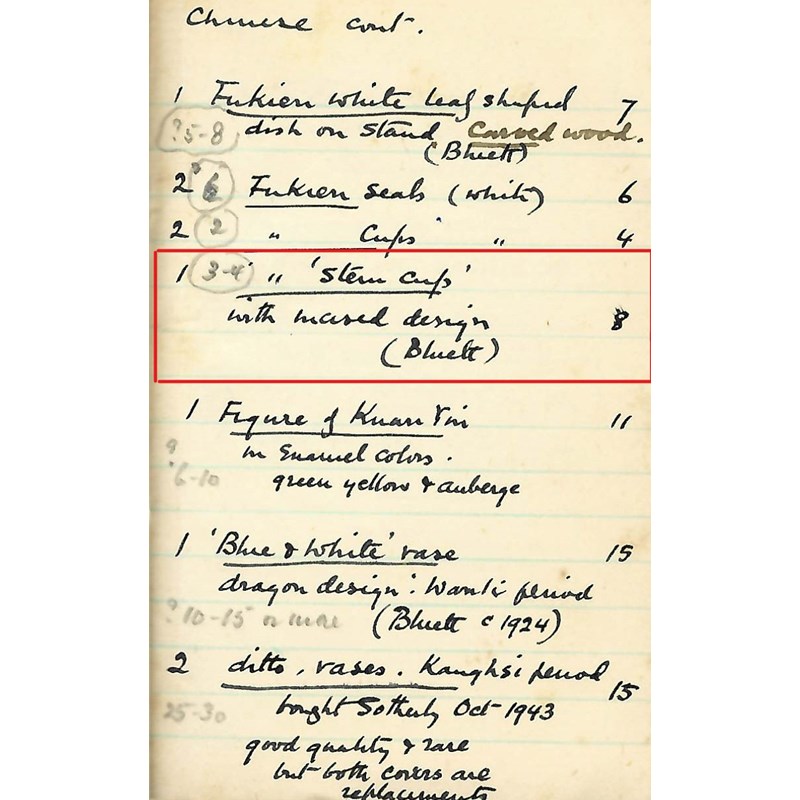 Chinese cont.
1 Fukien white leaf shaped 7
?5-8 dish on stand Carved wood.
(Bluett)
2 6 Fukien seals (white) 6
2 2 " Cups " 4
1 3-4 " 'Stem Cups'
with incised design 8
(Bluett)
1 Figure of Kuan Yin 11
in Enamel colors.
? 6-10 green yellow & auberge
1 'Blue & White' vase 15
dragon design: Wanli period
?10-15 or more (Bluett c 1924)
2 ditto, vases. Kanghsi period 15
25-30 bought Sotheby Oct 1943
good quality & rare
but both covers are
replacements